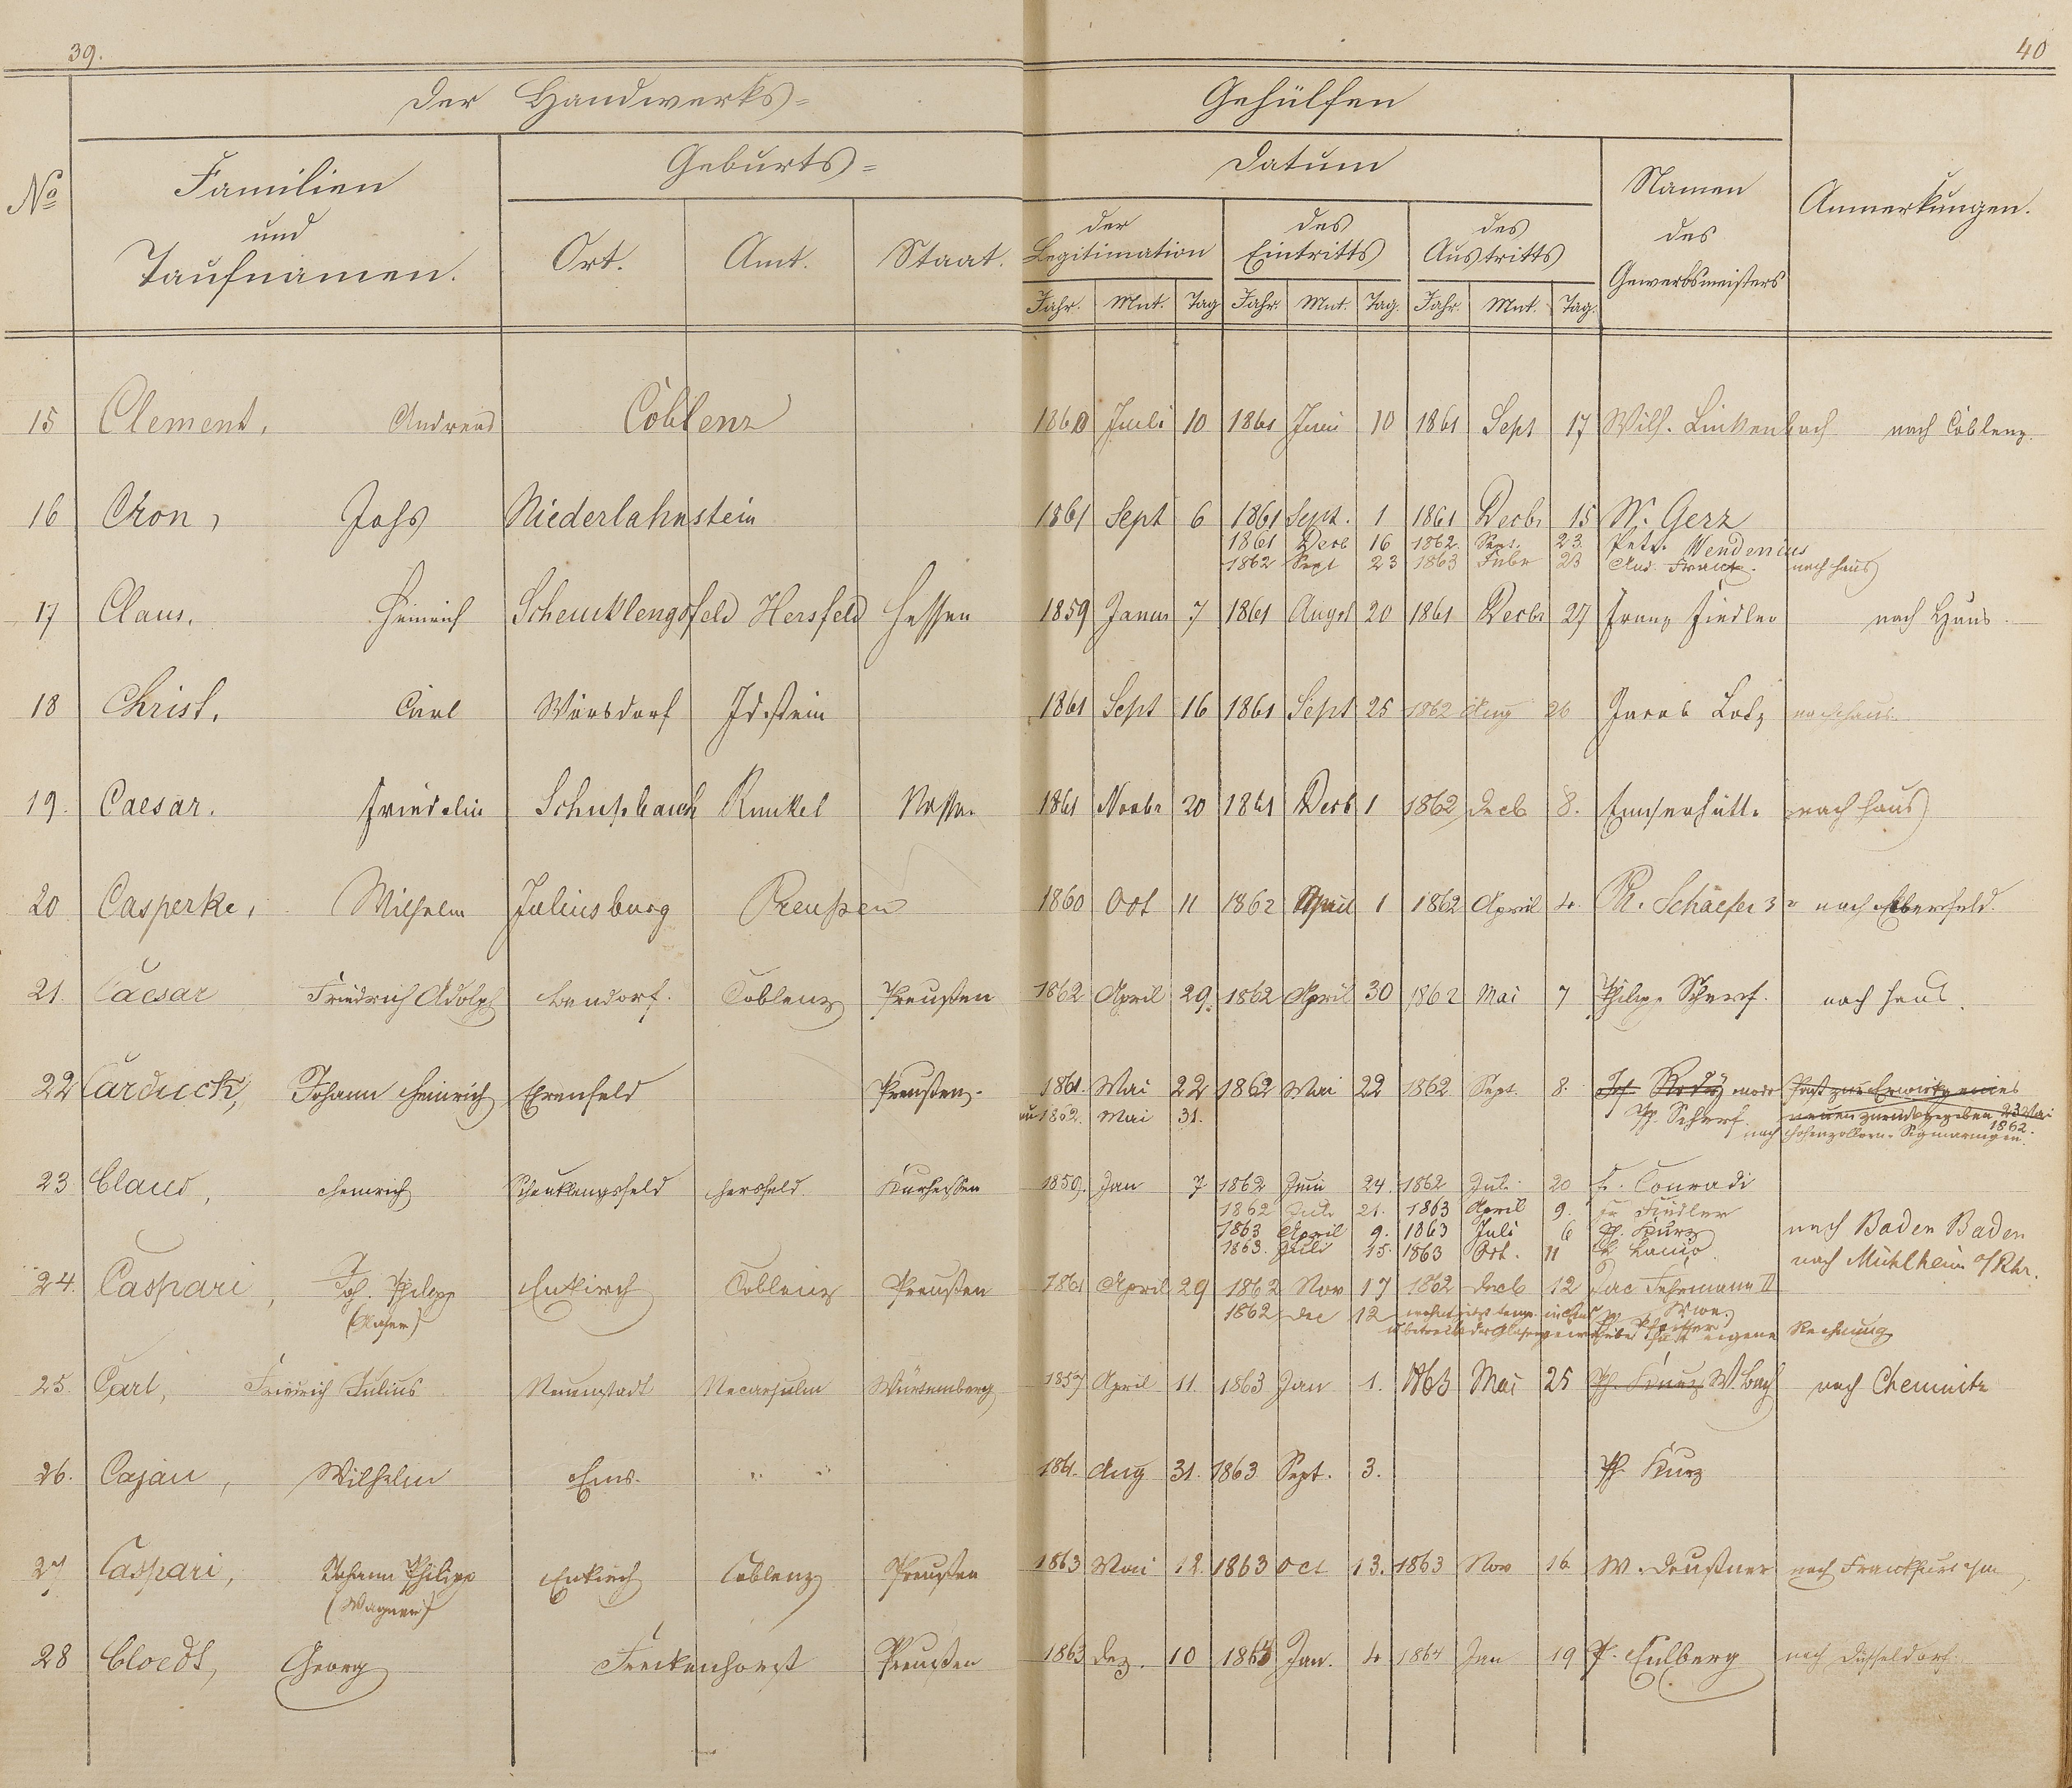 39.
40
Der Handwerks=
Gehülfen
No
Familien
und
Taufnamen.
Geburts=
Ort.
Amt.
Staat.
Datum
der
Legitimation
des
Eintritts
des
Austritts
Jahr. Mnt. Tag Jahr. Mnt. Tag. Jahr. Mnt. Tag.
Namen
des
Gewerbsmeisters
Anmerkungen.
15 Clement, Andreas Coblenz 1860 Juli 10 1861 Juni 10 1861 Sept 17 Wilh. Linkenbach nach Coblenz.
16 Cron, Johs Niederlahnstein 1861 Sept 6 1861 Sept. 1 1861 Decbr 15 W. Gerz
1861 Decb 16 1862. Sept. 23. Petr. Wendenius
1862 Sept 23 1863 Febr 23 And. Franck. nach Haus
17 Claus, Heinrich Schenklengsfeld Hersfeld Hessen 1859 Januar 7 1861 Augst 20 1861 Decbr 27 Franz Fiedler nach Haus.
18 Christ, Carl Wörsdorf Idstein 1861 Sept 16 1861 Sept 25 1862 Aug 26 Jacob Lotz nach Haus.
19. Caesar. Friedolin Schupbach Runkel Nassau 1861 Novbr 20 1861 Decb 1 1862 Decb 8. Emserhütte nach Haus
20 Casperke, Wilhelm Juliusburg Preußen 1860 Oct 11 1862 April 1 1862 April 4. Ph. Schaefer 3r nach Elberfeld.
21. Caesar Friedrich Adolph Bendorf. Coblenz Preußen 1862 April 29. 1862 April 30 1862 Mai 7 Philipp Scherf. nach Haus.
22 Carduck, Johann Heinrich Ehrenfeld Preußen. 1861. Mai 22 1862 Mai 22 1862 Sept. 8. modo Paß zur Erwirkg eines
1862. Mai 31. Ph. Scherf. neuen zurückgegeben 23 Mai 1862.
nach Hohenzollern-Sigmaringen.
23 Claus, Heinrich Schenklengsfeld Hersfeld Kurhessen 1859. Jan 7 1862 Juni 24. 1862 Juli 20 F. Conradi
1862 Juli 21. 1863 April 9. Fr Fiedler
1863 April 9. 1863 Juli 6 Ph. Kurz nach Baden Baden
1863. Juli 15. 1863 Oct. 11 nach Mühlheim a/Rhr.
24. Caspari, Joh. Philipp Enkirch Coblenz Preußen 1861 April 29 1862 Nov 17 1862 Decb 12 Jac Fehrmann II
(Glaser) 1862 Dec 12 eigene Rechnung
25. Carl, Friedrich Julius Neuenstadt Necarsulm Würtemberg 1857 April 11. 1863 Jan 1. 1863 Mai 25 Ph. Kurz W. Bach nach Chemnitz
26. Cajan, Wilhelm Ems. " " 1861. Aug 31. 1863 Sept. 3. Ph. Kurz
27 Caspari, Johann Philipp Enkirch Coblenz Preußen 1863 Mai 12. 1863 Oct 13. 1863 Nov 16 W. Deußner nach Frankfurt a/m
(Wagner)
28 Cloedt, Georg Freckenhorst Preußen 1863 Dez. 10 1864 Jan. 4 1864 Jan 19 P. Eulberg nach Düsseldorf.